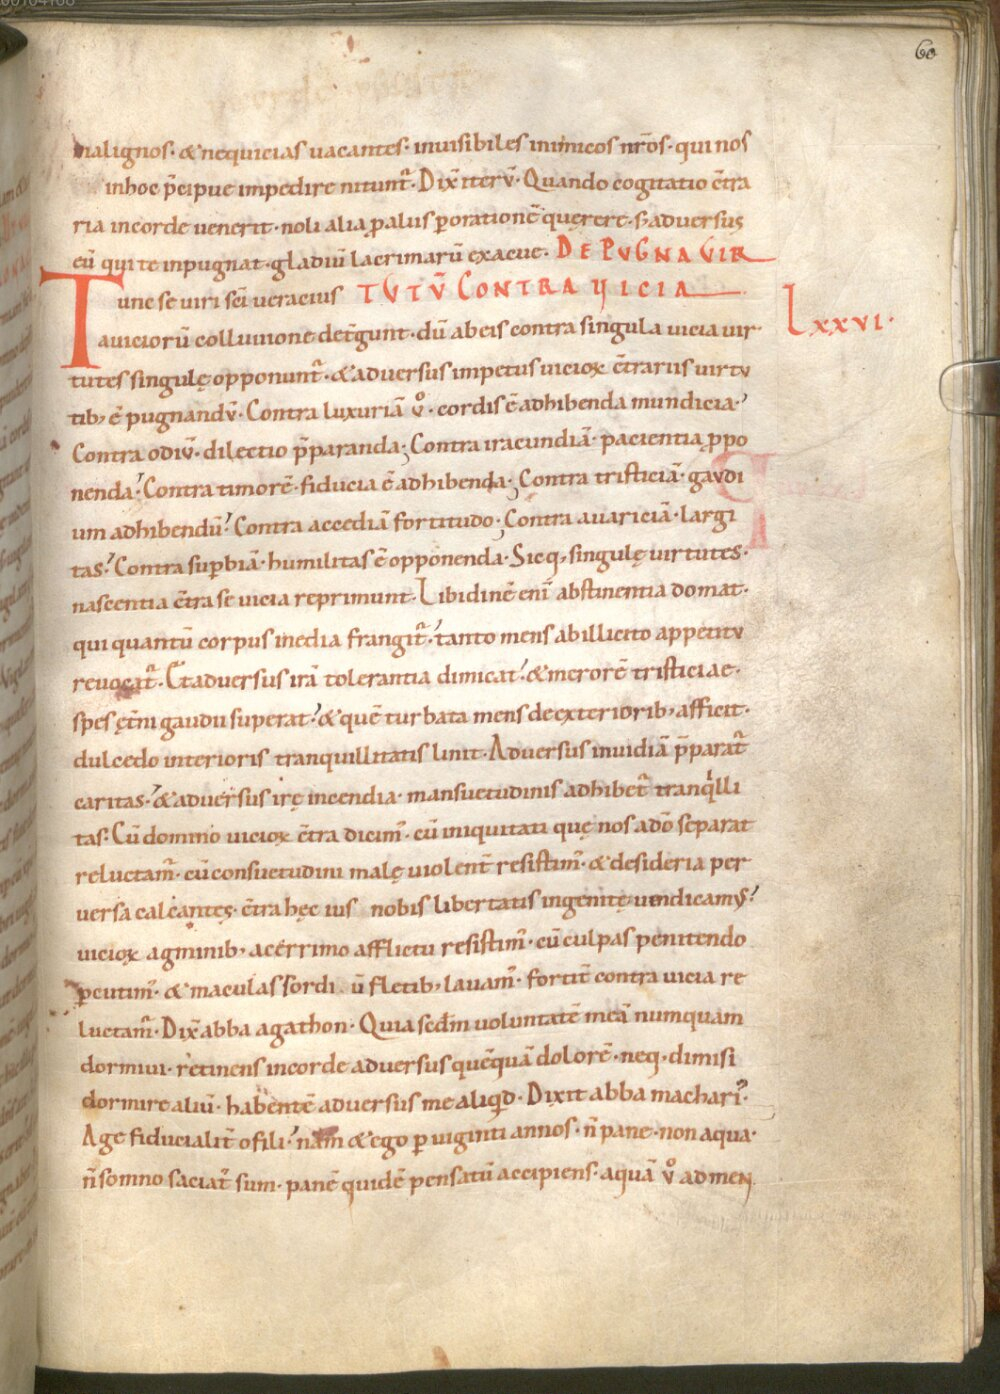 60
malignos· & nequicias vacantes· inuisibiles inimicos nr̄os· qui nos
inhoc p̄cipue impedire nitunt᷑· Dix̄ iterū· Quando cogitatio c̄tra
ria incorde uenerit· noli alia p alus p orationē quęrere· s; aduersus
eū qui te inpugnat· gladiū lacrimarū exacue· DE PUGNA VIR
Tunc se uiri sc̄i ueracius TUTŪ CONTRA VICIA
LXXVI·
a uiciorū colluuione det̄gunt· dū abeis contra singula uicia uir
tutes singulę opponunt᷑· & aduersus impetus uicioꝝ c̄trariis uirtu
tib; ē pugnandū· Contra luxuriā ů· cordis ē adhibenda mundicia·
Contra odiū· dilectio p̄paranda; Contra iracundiā· pacientia ppo
nenda· Contra timorē· fiducia ē adhibenda; Contra tristiciā· gaudi
um adhibendū· Contra accediā fortitudo; Contra auariciā· largi
tas· Contra supbiā· humilitas ē opponenda· Sicq; singulę uirtutes·
nascentia c̄tra se uicia reprimunt· Libidinē enī abstinentia domat·
qui quantū corpus inedia frangit᷑· tanto mens abillicito appetitu
reuocat᷑· Ct̄ aduersus irā tolerantia dimicat· & merorē tristiciae·
spes ęt̄ni gaudii superat· & quē turbata mens de exteriorib; afficit·
dulcedo interioris tranquillitatis linit· Aduersus inuidiā p̄parat᷑
caritas· & aduersus irę incendia· mansuetudinis adhibet᷑ tranqͥlli
tas· Cū domino uicioꝝ c̄tra dicim᷒· cū iniquitati quę nos adō separat
reluctam᷒· cū consuetudini malę uiolent̄ resistim᷒· & desideria per
uersa calcantes· c̄tra hęc ius nobis libertatis ingenitę uendicamus·
uicioꝝ agminib; acerrimo afflictu resistim᷒· cū culpas penitendo
pcutim᷒· & maculas sordiū fletib; lauam᷒· fortit̄ contra uicia re
luctam᷒· Dix̄ abba agathon· Quia scd̄m uoluntatē meā numquam
dormiui· retinens incorde aduersus quēquā dolorē· neq; dimisi
dormire aliū· habentē aduersus me aliqͥd· Dixit abba machari᷒
Age fiducialit̄ o fili· nam & ego p uiginti annos· n̄ pane· non aqua·
n̄ somno saciat᷒ sum· panē quidē pensatū accipiens· aquā ů ad men